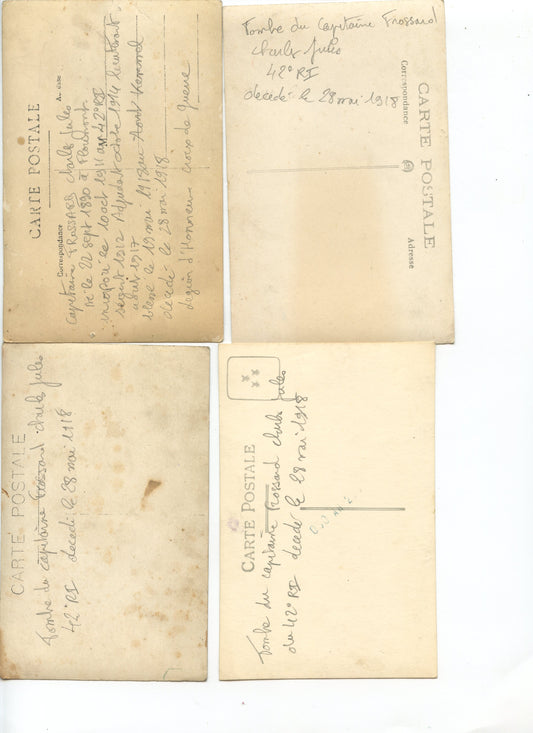 CARTE POSTALE
Correspondance
Capitaine FROSSARD Charles Jules
Né le 22 sept 1890 à Floremont
incorporé le 10 oct 1911 au 42°RI
sergent 1912 Adjudant octobre 1914 lieutenant
août 1917
blessé le 19 mai 1918 au Mont Kemmel
décédé le 28 mai 1918
Legion d'Honneur - croix de guerre
Tombe du Capitaine Frossard
Charles Jules
42°RI
décédé le 28 mai 1918
CARTE POSTALE
Correspondance
Adresse
CARTE POSTALE
Tombe du capitaine Frossard Charles Jules
42°RI décédé le 28 mai 1918
CARTE POSTALE
Tombe du capitaine Frossard Charles Jules
du 42° RI décédé le 28 mai 1918